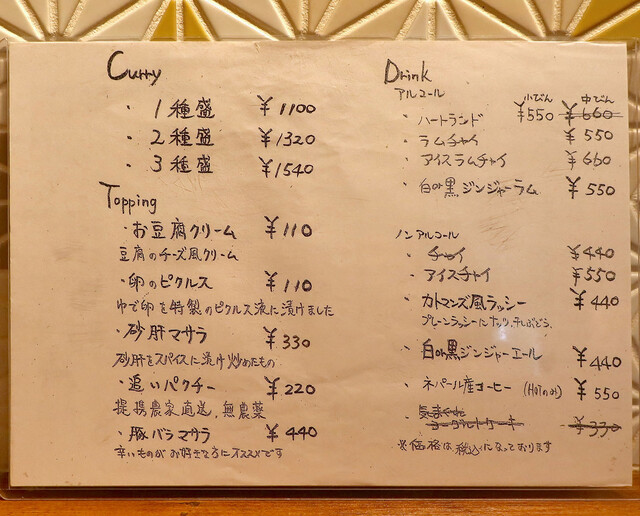 Curry
・1種盛 ¥1100
・2種盛 ¥1320
・3種盛 ¥1540
Topping
・お豆腐クリーム ¥110
豆腐のチーズ風クリーム
・卵のピクルス ¥110
ゆで卵を特製のピクルス液に漬けました
・砂肝マサラ ¥330
砂肝をスパイスに漬け炒めたもの
・追いパクチー ¥220
提携農家直送、無農薬
・豚バラマサラ ¥440
辛いものがお好きな方にオススメです
Drink
アルコール
小びん 中びん
・ハートランド ¥550 ¥660
・ラムチャイ ¥550
・アイスラムチャイ ¥660
・白or黒ジンジャーラム ¥550
ノンアルコール
・チャイ ¥440
・アイスチャイ ¥550
・カトマンズ風ラッシー ¥440
プレーンラッシーにナッツ、干しぶどう
・白or黒ジンジャーエール ¥440
・ネパール産コーヒー (Hotのみ) ¥550
・気まぐれ
ヨーグルトケーキ ¥330
※価格は税込になっております